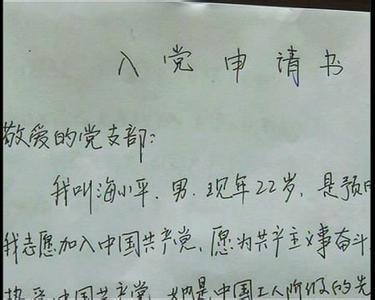 入党申请书
敬爱的党支部:
我叫海小平、男、现年22岁、是预
我志愿加入中国共产党、愿为共产主义事奋斗
热爱中国共产党 是中国工人阶级的先